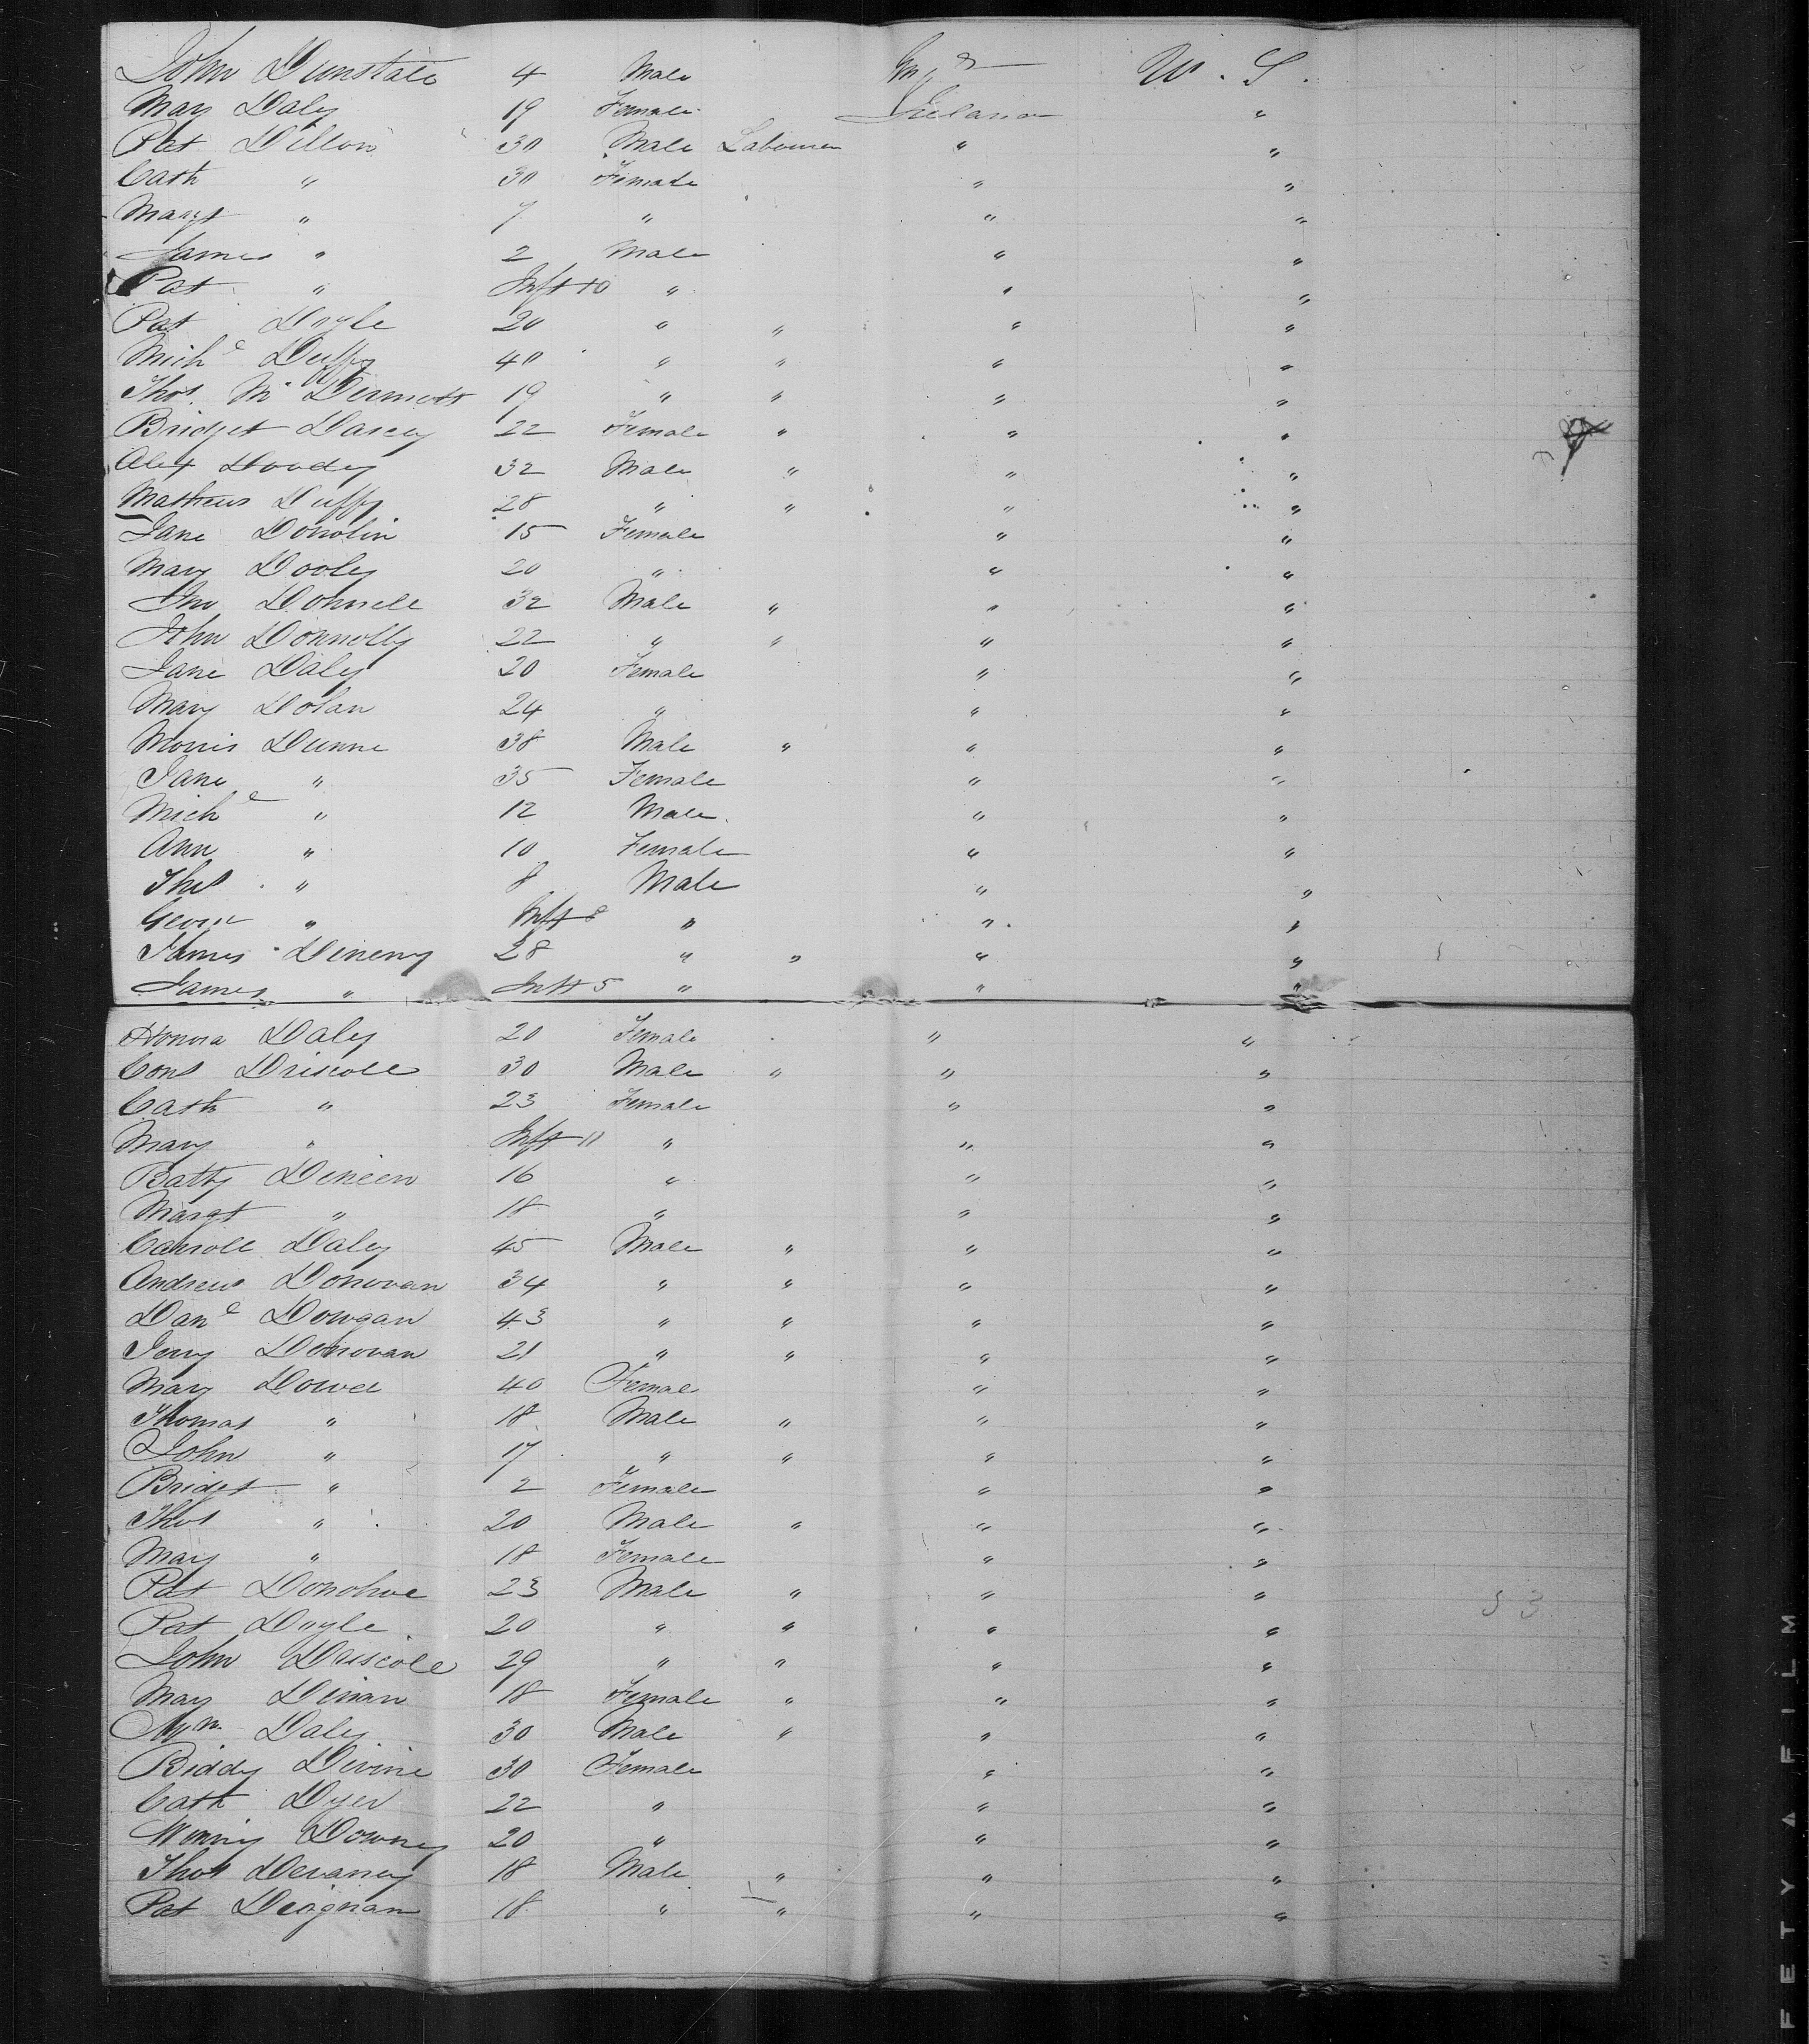 John Dunstall 4 Male Engd U. S.
Mary Daly 19 Female Ireland "
Pat Dillon 30 Male Labourer " "
Cath " 30 Female " "
Margt " 7 " " "
James " 2 Male " "
Pat " Inft 10 " " "
Pat Doyle 20 " " " "
Michl Duffy 40 " " " "
Thos. Mc Dermott 19 " " " "
Bridget Darcy 22 Female " " "
Alex Doody 32 Male " " "
Mathew Duffy 28 " " " "
Jane Donolin 15 Female " "
Mary Dooley 20 " " "
Jno Donnell 32 Male " " "
John Donnolly 22 " " " "
Jane Daly 20 Female " "
Mary Dolan 24 " " "
Morris Dunne 38 Male " " "
Jane " 35 Female " "
Michl " 12 Male " "
Ann " 10 Female " "
Thos " 8 Male " "
George " Inft 8 " " "
James Dineny 28 " " " "
James " Inft 5 " " "
Honora Daly 20 Female " "
Cons Driscoll 30 Male " " "
Cath " 23 Female " "
Mary " Inft 11 " " "
Batty Dineen 16 " " "
Margt " 18 " " "
Carroll Daly 45 Male " " "
Andrew Donovan 34 " " " "
Danl Dowgan 43 " " " "
Jerry Donovan 21 " " " "
Mary Dowel 40 Female " "
Thomas " 18 Male " " "
John " 17 " " " "
Bridgt " 2 Female " "
Thos " 20 Male " " "
Mary " 18 Female " "
Pat Donohoe 23 Male " " "
Pat Doyle 20 " " " "
John Driscoll 29 " " " "
Mary Dinan 18 Female " " "
Wm Daly 30 Male " " "
Biddy Divine 30 Female " "
Cath Dyer 22 " " "
Winny Downey 20 " " "
Thos Devaney 18 Male " " "
Pat Deignan 18 " " " "
53
FETY FILM